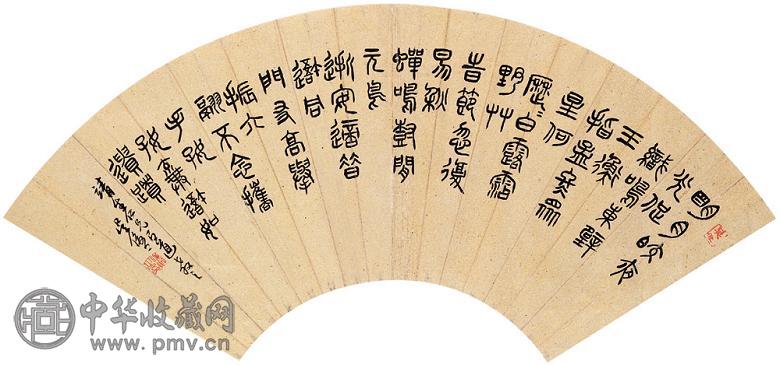 明月皎夜
光促
織鳴東壁
玉衡
指孟冬眾
星何
歷〻白露霑
野艸
時節忽復
易秋
蟬鳴樹間
元鳥
逝安適昔
我同
門友高舉
振六
翮不念攜
手好
棄我如遺
跡
中华收藏网
www.pmv.cn